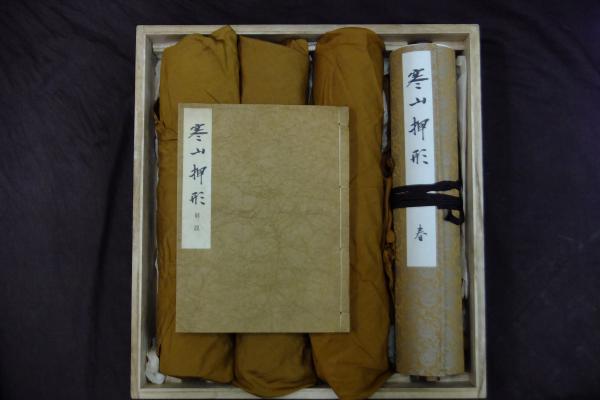 寒山押形
解説
寒山押形
春